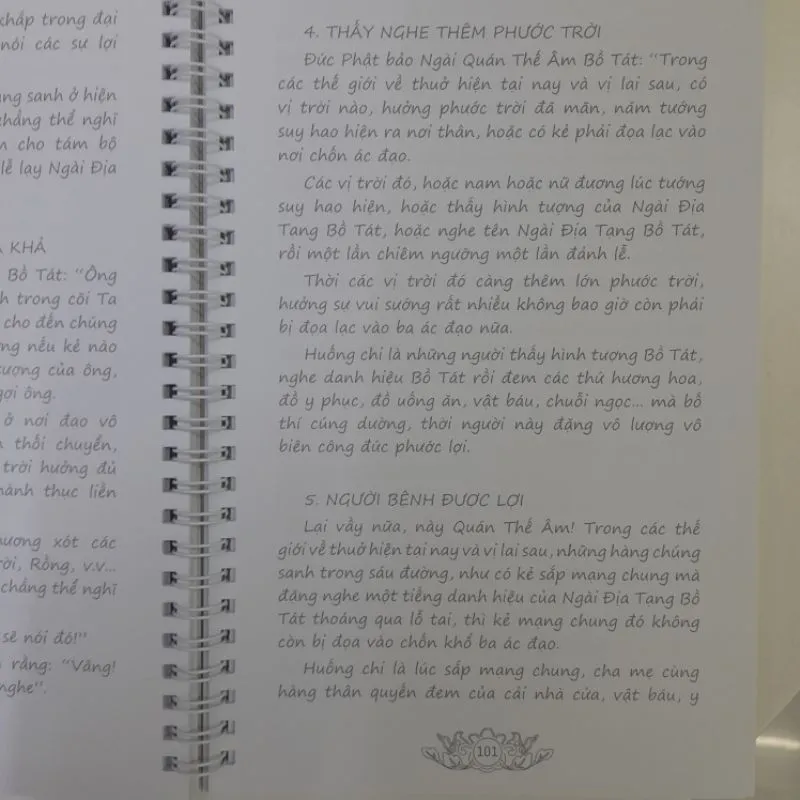 chấp trong đại
nói các sự lợi
ng sanh ở hiện
chẳng thể nghĩ
cho tám bộ
lễ lạy Ngài Địa
KHẢ
Bồ Tát: “Ông
h trong cõi Ta
cho đến chúng
ng nếu kẻ nào
tượng của ông,
gợi ông.
ở nơi đạo vô
thối chuyển,
trời hưởng đủ
hành thục liền
hương xót các
rời, Rồng, v.v...
chẳng thể nghĩ
sẽ nói đó!”
rằng: “Vâng!
nghe”.
4. THẤY NGHE THÊM PHƯỚC TRỜI
Đức Phật bảo Ngài Quán Thế Âm Bồ Tát: “Trong
các thế giới về thuở hiện tại nay và vị lai sau, có
vị trời nào, hưởng phước trời đã mãn, năm tướng
suy hao hiện ra nơi thân, hoặc có kẻ phải đọa lạc vào
nơi chốn ác đạo.
Các vị trời đó, hoặc nam hoặc nữ đương lúc tướng
suy hao hiện, hoặc thấy hình tượng của Ngài Địa
Tạng Bồ Tát, hoặc nghe tên Ngài Địa Tạng Bồ Tát,
rồi một lần chiêm ngưỡng một lần đảnh lễ.
Thời các vị trời đó càng thêm lớn phước trời,
hưởng sự vui sướng rất nhiều không bao giờ còn phải
bị đọa lạc vào ba ác đạo nữa.
Huống chi là những người thấy hình tượng Bồ Tát,
nghe danh hiệu Bồ Tát rồi đem các thứ hương hoa,
đồ y phục, đồ uống ăn, vật báu, chuỗi ngọc... mà bố
thí cúng dường, thời người này đặng vô lượng vô
biên công đức phước lợi.
5. NGƯỜI BỆNH ĐƯỢC LỢI
Lại vầy nữa, này Quán Thế Âm! Trong các thế
giới về thuở hiện tại nay và vị lai sau, những hàng chúng
sanh trong sáu đường, như có kẻ sắp mạng chung mà
đặng nghe một tiếng danh hiệu của Ngài Địa Tạng Bồ
Tát thoáng qua lỗ tai, thì kẻ mạng chung đó không
còn bị đọa vào chốn khổ ba ác đạo.
Huống chi là lúc sắp mạng chung, cha mẹ cùng
hàng thân quyến đem của cải nhà cửa, vật báu, y
101